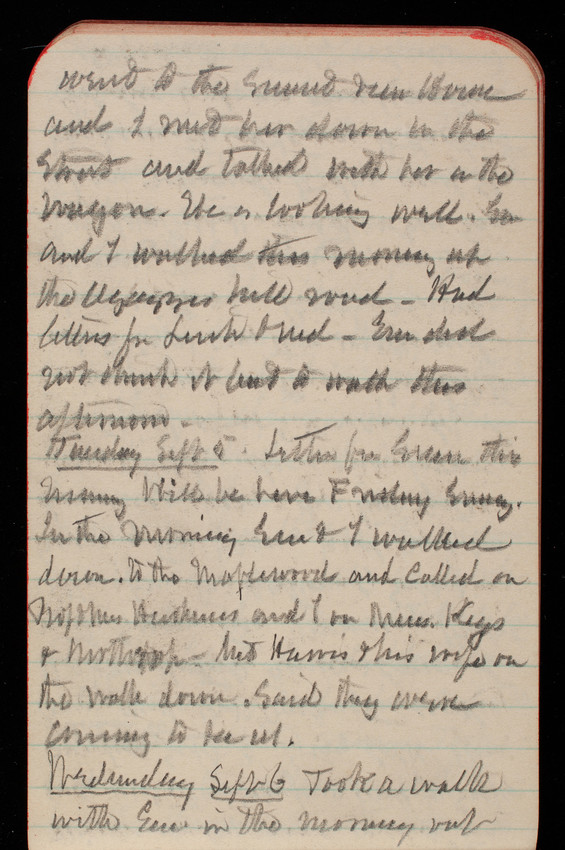 went to the Summit
and I met her down in the
Street and talked with her in the
Wagon. She is looking well. Em
and I walked this morning up
the hill road - Had
letters fr & Fred - Em did
not think it best to walk this
afternoon.
Tuesday Sept 5. Letter fr this
morning Will be here Friday Evening.
In the morning Em & I walked
down to the Maplewood and called on
and I on
& - Met Harris & his wife on
the walk down. Said they were
coming to see us.
Wednesday Sept 6 Took a walk
with Em in the morning